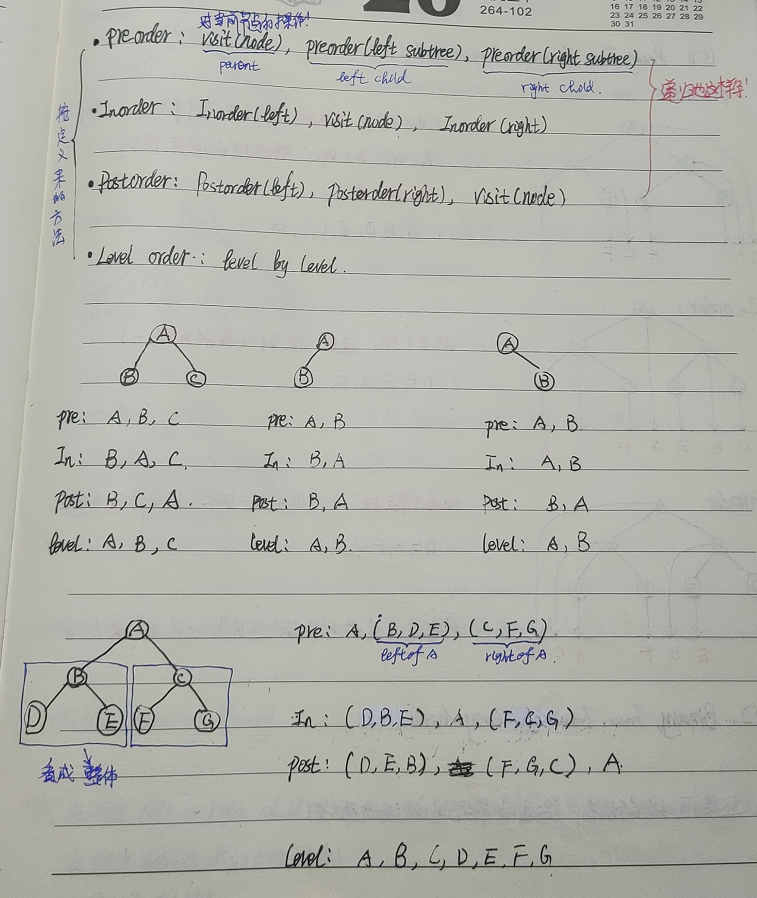 264-102
16 17 18 19 20 21 22
23 24 25 26 27 28 29
30 31
对当前节点的操作!
• Preorder: visit(node), preorder(left subtree), preorder(right subtree)
parent
left child
right chold.
递归地这样写!
• Inorder: Inorder(left), visit(node), Inorder(right)
• Postorder: Postorder(left), Postorder(right), visit(node)
• Level order: level by level.
按定义来的方法
A
B C
A
B
A
B
pre: A, B, C
pre: A, B
pre: A, B
In: B, A, C.
In: B, A
In: A, B
Post: B, C, A.
Post: B, A
Post: B, A
level: A, B, C
level: A, B.
level: A, B
A
B C
D E F G
看成整体
pre: A, (B, D, E), (C, F, G)
left of A
right of A.
In: (D, B, E), A, (F, C, G)
post: (D, E, B), (F, G, C), A.
level: A, B, C, D, E, F, G